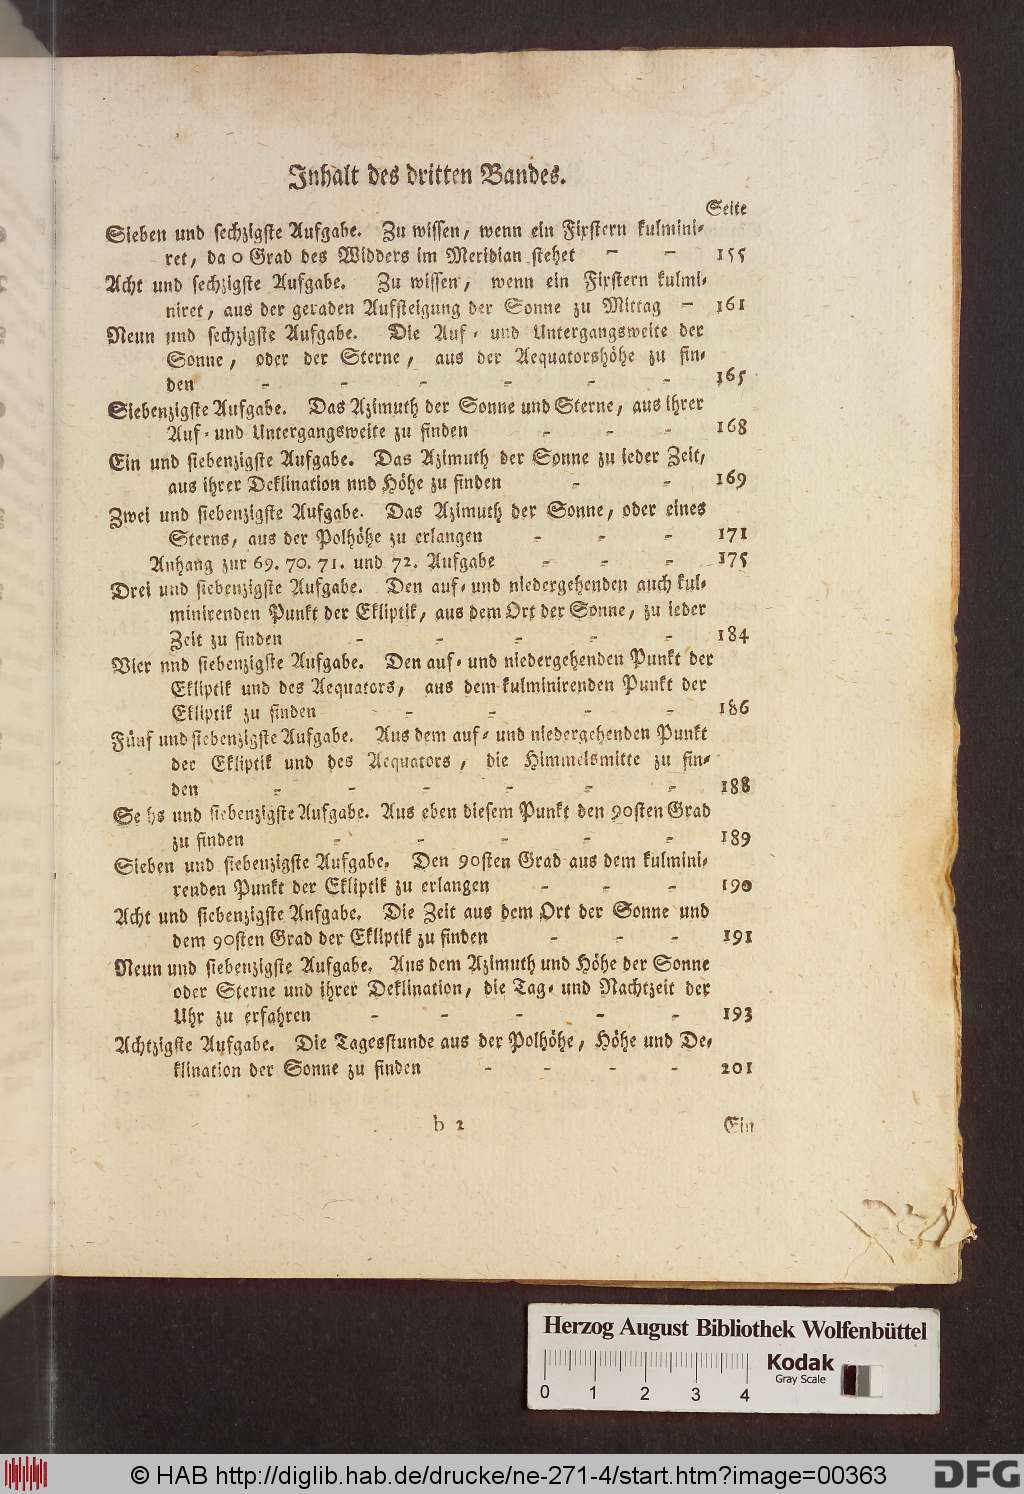 Inhalt des dritten Bandes.
Seite
Sieben und sechzigste Aufgabe. Zu wissen, wenn ein Fixstern kulmini-
ret, da 0 Grad des Widders im Meridian stehet - - 155
Acht und sechzigste Aufgabe. Zu wissen, wenn ein Fixstern kulmi-
niret, aus der geraden Aufsteigung der Sonne zu Mittag - 161
Neun und sechzigste Aufgabe. Die Auf- und Untergangsweite der
Sonne, oder der Sterne, aus der Aequatorshöhe zu fin-
den - - - - - - 165
Siebenzigste Aufgabe. Das Azimuth der Sonne und Sterne, aus ihrer
Auf- und Untergangsweite zu finden - - - 168
Ein und siebenzigste Aufgabe. Das Azimuth der Sonne zu jeder Zeit,
aus ihrer Deklination nnd Höhe zu finden - - 169
Zwei und siebenzigste Aufgabe. Das Azimuth der Sonne, oder eines
Sterns, aus der Polhöhe zu erlangen - - - 171
Anhang zur 69. 70. 71. und 72. Aufgabe - - - 175
Drei und siebenzigste Aufgabe. Den auf- und niedergehenden auch kul-
minirenden Punkt der Ekliptik, aus dem Ort der Sonne, zu jeder
Zeit zu finden - - - - - 184
Vier nnd siebenzigste Aufgabe. Den auf- und niedergehenden Punkt der
Ekliptik und des Aequators, aus dem kulminirenden Punkt der
Ekliptik zu finden - - - - 186
Fünf und siebenzigste Aufgabe. Aus dem auf- und niedergehenden Punkt
der Ekliptik und des Aequators, die Himmelsmitte zu fin-
den - - - - - - 188
Sechs und siebenzigste Aufgabe. Aus eben diesem Punkt den 90sten Grad
zu finden - - - - - 189
Sieben und siebenzigste Aufgabe. Den 90sten Grad aus dem kulmini-
renden Punkt der Ekliptik zu erlangen - - - 190
Acht und siebenzigste Anfgabe. Die Zeit aus dem Ort der Sonne und
dem 90sten Grad der Ekliptik zu finden - - - 191
Neun und siebenzigste Aufgabe. Aus dem Azimuth und Höhe der Sonne
oder Sterne und ihrer Deklination, die Tag- und Nachtzeit der
Uhr zu erfahren - - - - - 193
Achtzigste Aufgabe. Die Tagesstunde aus der Polhöhe, Höhe und De-
klination der Sonne zu finden - - - - 201
b 2 Ein
Herzog August Bibliothek Wolfenbüttel
Kodak
Gray Scale
0 1 2 3 4
© HAB http://diglib.hab.de/drucke/ne-271-4/start.htm?image=00363
DFG